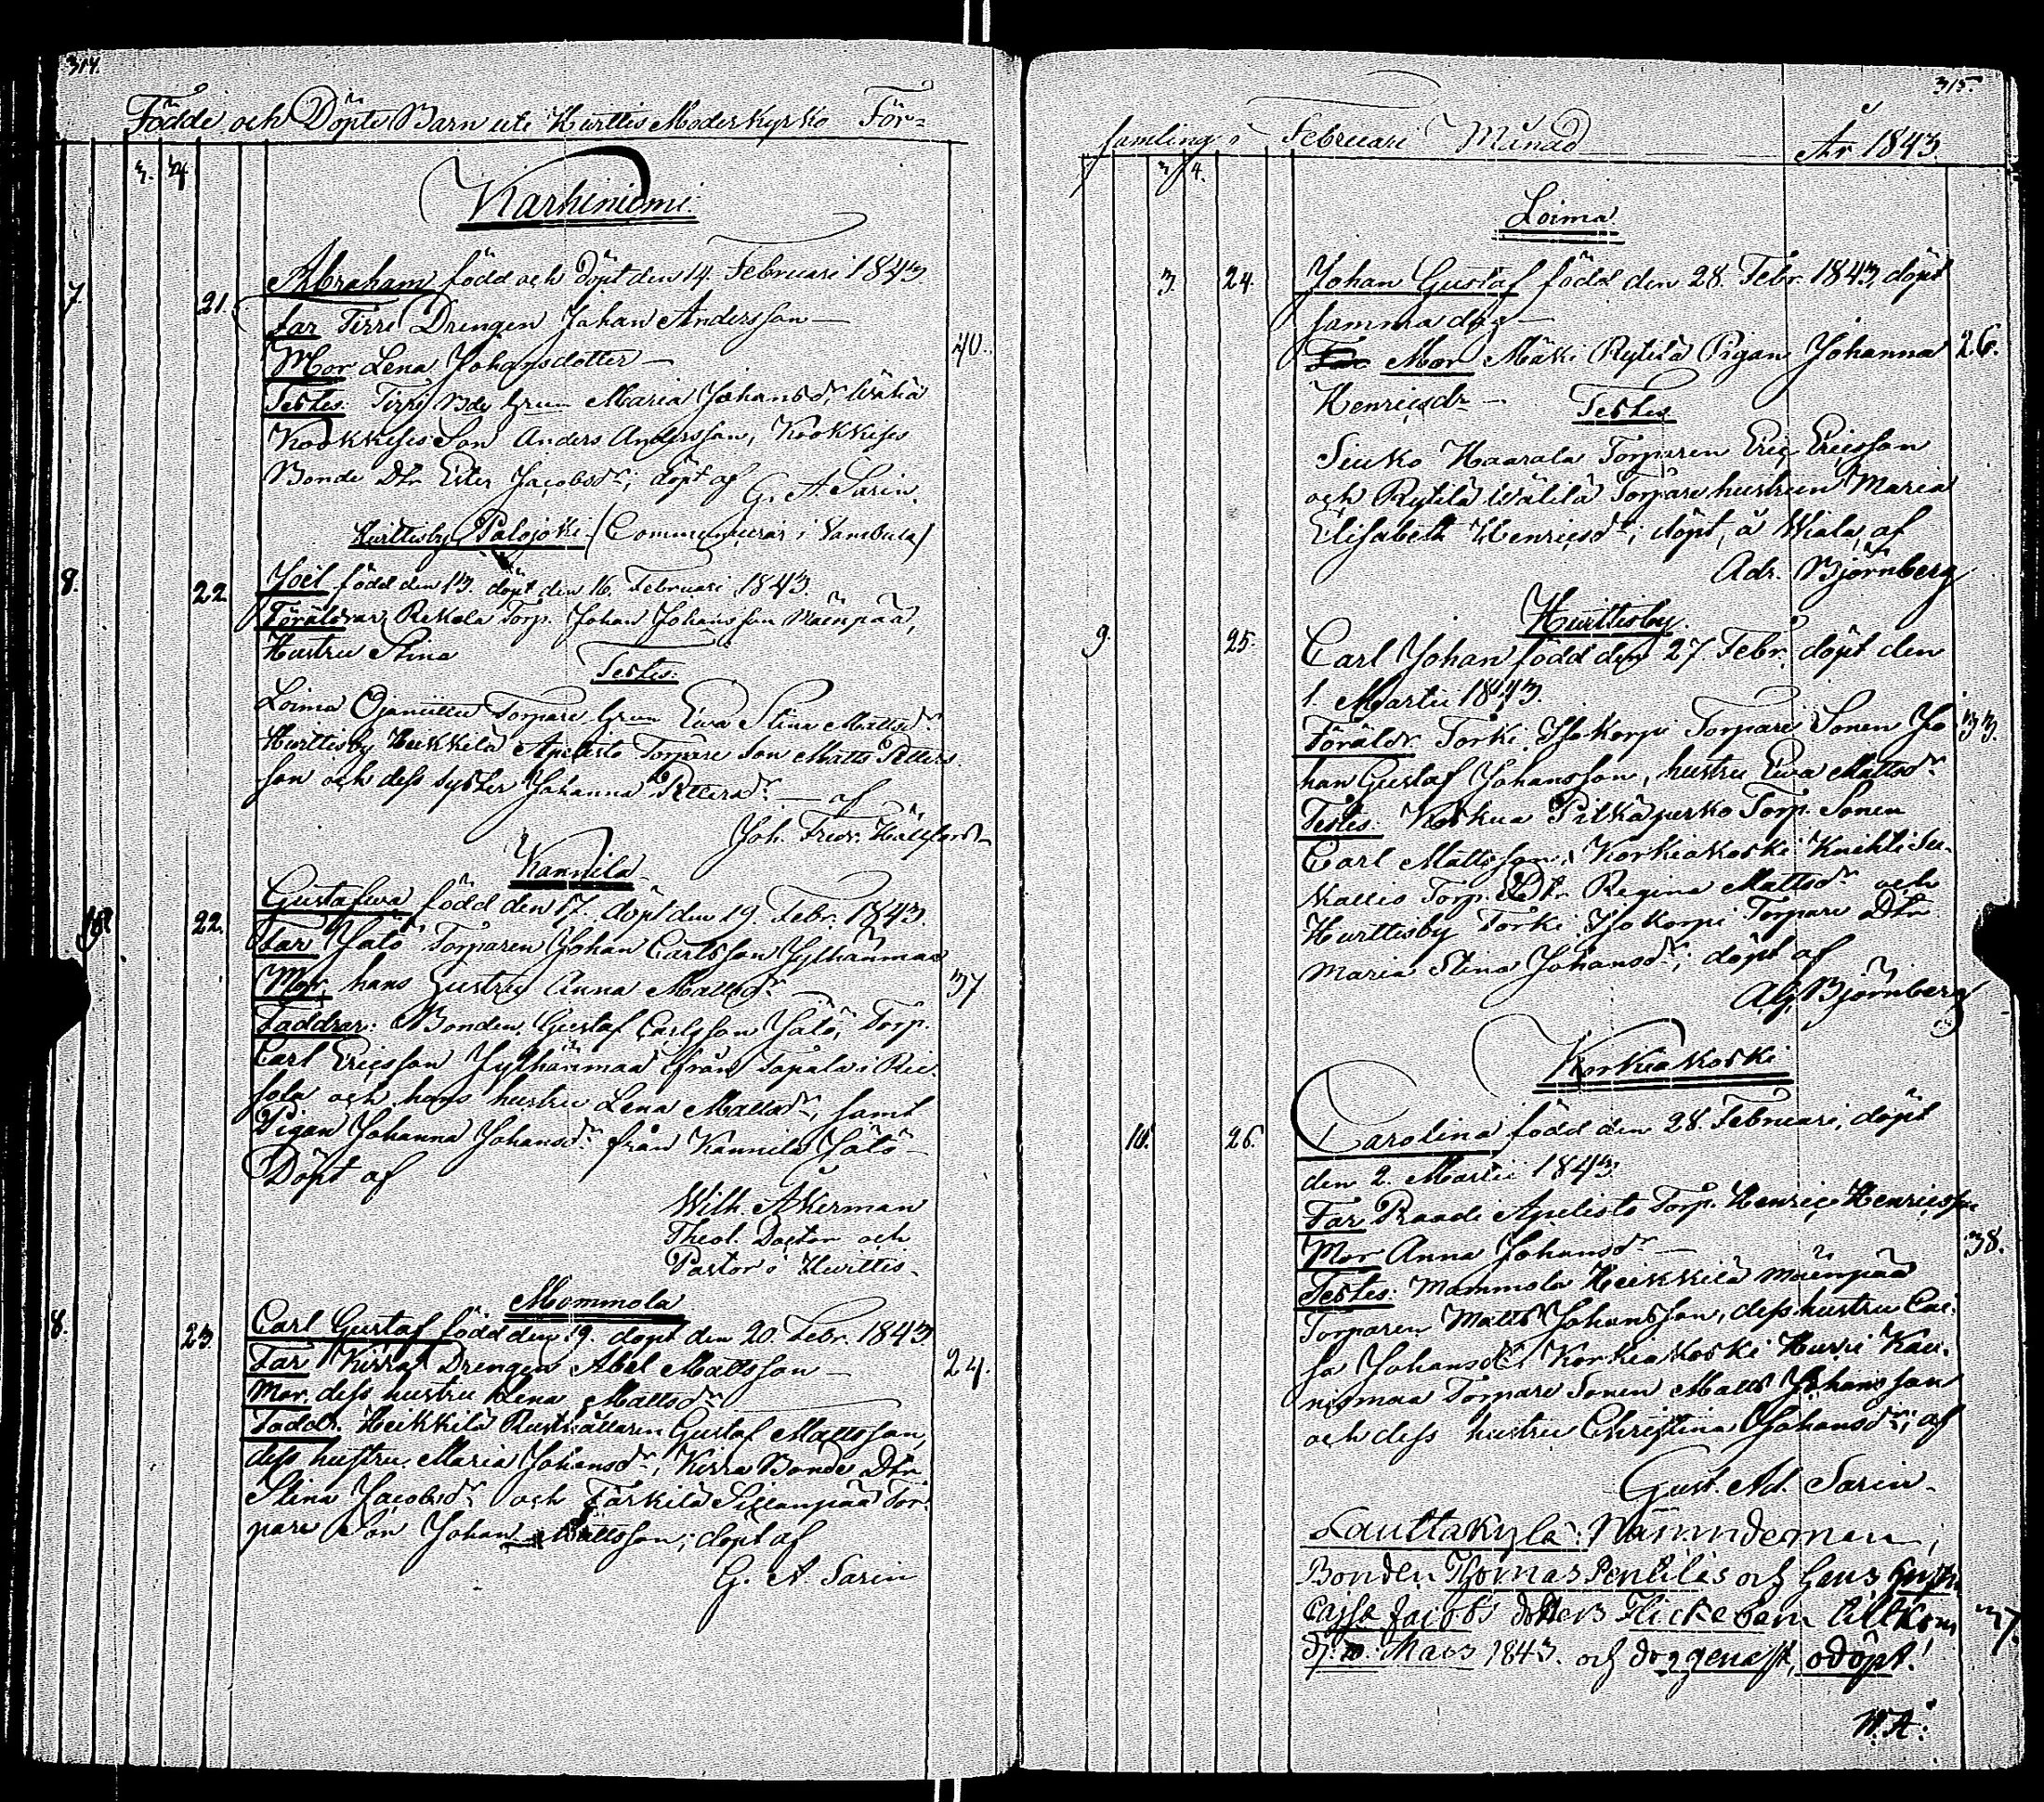 314.
Födde och Döpte Barn uti Huittis Moderkyrko För=
3. 4
Karhiniemi
7. 21. Abraham född och döpt den 14. Februari 1843.
Far Tirri Drengen Johan Andersson —
40.
Mor Lena Johansdotter —
Testes: Tirri Bde hrun Maria Johansdr, Wähä
Kookkeses Son Anders Andersson, Kookkeses
Bonde Dtr Ester Jacobsdr; döpt af G. A. Sarin.
Huittisby Palojoki (Communicerar i Vambula)
8. 22 Joël född den 13. döpt den 16. Februari 1843.
Föräldrar: Rekola Torp. Johan Johansson Mäenpää,
Hustru Stina
Testes:
Loima Ojanullu Torpare hrun Ewa Stina Mattsdr
Huittisby Heikkilä Apulisto Torpare Son Matts Petters
son och dess syster Johanna Pettersdr — af
Joh. Fredr. Hällfors
Kannila
22. Gustafwa född den 17. döpt den 19. Febr. 1843.
Far Jalo Torparen Johan Carlsson Jylhänmaa
Mor, hans hustru Anna Mattsdr 37
Faddrar: Bonden Gustaf Carlsson Jalo, Torp.
Carl Ericsson Jylhänmaa ifrån Tapala i Rie
sola och hans hustru Lena Mattsdr, samt
Pigan Johanna Johansdr från Kannila Jalo —
Döpt af
Wilh. Åkerman
Theol. Doctor och
Pastor i Huittis
Mommola
8. 23. Carl Gustaf född den 19. döpt den 20. Febr. 1843
Far Kirra Drengen Abel Mattsson —
24.
Mor, dess hustru Lena Mattsdr
Faddr. Heikkilä Rusthållaren Gustaf Mattsson,
dess hustru Maria Johansdr, Kirra Bonde Dtr
Stina Jacobsdr och Färkilä Sillanpää Tor=
pare Son Johan Mattsson; döpt af
G. A. Sarin
315.
samling i Februari Månad År 1843.
3 4.
Loima
3. 24. Johan Gustaf född den 28. Febr. 1843, döpt
samma dag —
Mor Mäki Rytilä Pigan Johanna 26.
Henricsdr —
Testes
Siuko Haarala Torparen Eric Ericsson
och Rytilä Wälilä Torpare hustrun Maria
Elisabeth Henricsdr; döpt, å Wiala, af
Adr. Björnberg
Huittisby.
9. 25. Carl Johan född den 27. Febr. döpt den
1. Martii 1843.
Föräldr. Torki Isokorpi Torpare Sonen Jo 33.
han Gustaf Johansson, hustru Ewa Mattsd
Testes: Koskua Pitkäjurko Torp. Sonen
Carl Mattsson, Korkiakoski Knihti Su
kallis Torp. Dtr. Regina Mattsdr och
Huittisby Torki Isokorpi Torpare Dtr
Maria Stina Johansdr; döpt af
Björnberg
Korkiakoski
10. 26. Carolina född den 28. Februari, döpt
den 2. Martii 1843.
Far Raadi Apulisto Torp. Henric Henricsson
38.
Mor Anna Johansdr —
Testes: Mammola Heikkilä Mäenpää
Torparen Matts Johansson, dess hustru Cai=
sa Johansdr, Korkiakoski Hurri Kau=
nismaa Torpare Sonen Matts Johansson
och dess hustru Christina Johansdr; af
Gust. Ad. Sarin.
Lauttakylä: Nämndeman,
Bonden Thomas Pentilis och hans hustru
Cajsa Jacobs dotters Flickebarn tillkom 37.
d. Mars 1843. och dog genast, odöpt!
W. Å.